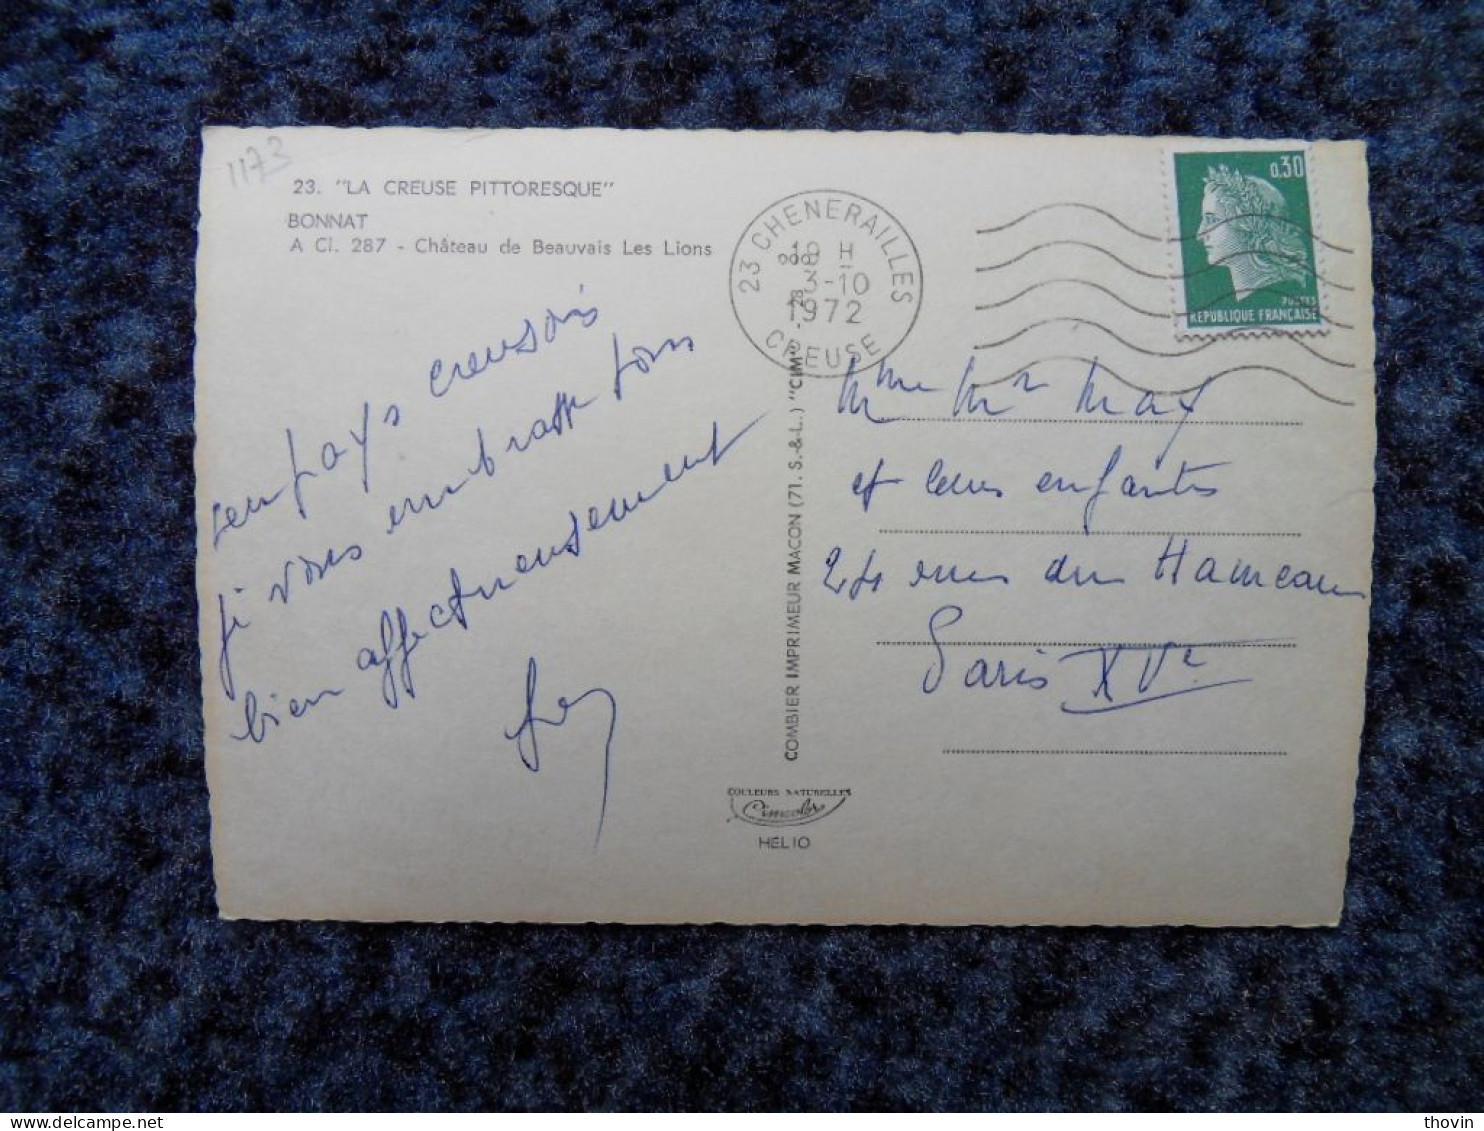 1173
23. "LA CREUSE PITTORESQUE"
BONNAT
A Cl. 287 - Château de Beauvais Les Lions
en pays creusois
je vous embrasse tous
bien affectueusement
23 CHENERAILLES
19 H
3-10
1972
CREUSE
0,30
POSTES
REPUBLIQUE FRANÇAISE
Mme Mr May
et leurs enfants
24 rue du Hameau
Paris XVe
COMBIER IMPRIMEUR MACON (71. S.-&-L.) "CIM"
COULEURS NATURELLES
Cimcolor
HELIO
thovin